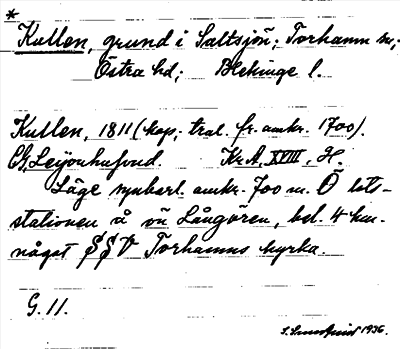 *
Kullen, grund i Saltsjön; Torhamn sn;
Östra hd; Blekinge l.
Kullen, 1811 (kop; tral. fr. omkr. 1700).
CG, Leijonhufvud. Kr.A. XVIII, H.
Läge synbarl. omkr. 700 m. Ö lots-
stationen å ön Långören, bel. 4 km.
något SSV Torhamns kyrka.
G. 11.
1936.